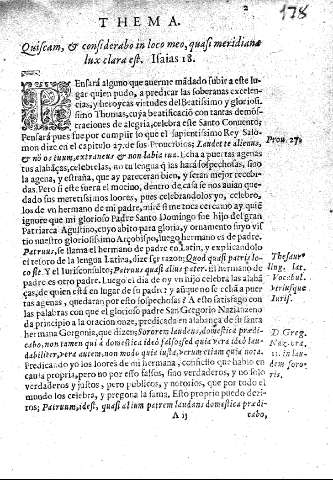 2
178
THEMA.
Quiescam, & considerabo in loco meo, quasi meridiana
lux clara est. Isaias 18.
PEnsará alguno que auerme mãdado subir a este lu-
gar quien pudo, a predicar las soberanas excelen-
cias, y heroycas virtudes del Beatissimo y gloriosi-
simo Thomas, cuya beatificació con tantas demós-
traciones de alegria, celebra este Santo Conuento:
Pensará pues fue por cumplir lo que el sapientissimo Rey Salo-
mon dize en el capitulo 27. de sus Prouerbios; Laudet te alienus,
& nõ os tuum, extraneus & non labia tua. Echa a puertas agenas
tus alabãças, celebrelas, no tu lengua q̃ las hará sospechosas, sino
la agena, y estraña, que ay pareceran bien, y seràn mejor recebi-
das. Pero si este fuera el motiuo, dentro de casa se nos auian que-
dado sus meretissimos loores, pues celebrandolos yo, celebro-
los de vn hermano de mi padre, mirè si me toca cercano: ay quiẽ
ignore que mi glorioso Padre Santo Domingo fue hijo del gran
Patriarca Agustino, cuyo abito para gloria, y ornamento suyo vis-
tio nuestro gloriosissimo Arçobispo, luego hermano es de padre.
Patruus, se llama el hermano de padre en Latin, y explicandolo
el tesoro de la lengua Latina, dize sor razon; Quod quasi patris lo-
co sit. Y el Iurisconsulto; Patruus quasi alius pater. El hermano de
padre es otro padre. Luego el dia de oy vn hijo celebra las alabã-
ças, de quien està en lugar de su padre? y asique no se echa a puer-
tas agenas, quedaran por esso sospechosas? A esto satisfago con
las palabras con que el glorioso padre San Gregorio Nazianzeno
da principio a la oracion onze, predicada en alabança de su santa
hermana Gorgonia, que dizen; Sororem laudens, domestica prædi-
cabo, non tamen quia domestica ideò falso: sed quia vera ideò lau-
dabiliter, vera autem, non modò quia iusta, verum etiam quia nota.
Predicando yo los loores de mi hermana, confiesso que hablo en
causa propria, pero no por esso falsos, sino verdaderos, y no solo
verdaderos y justos, pero publicos, y notorios, que por todo el
mundo los celebra, y pregona la fama. Esto proprio puedo dezi-
ros; Patruum, idest, quasi alium patrem laudans domestica prædi-
A ij
cabo,
Prou. 27.
Thesaur.
ling. lat.
Vocabul.
vtriusque
Iuris.
D. Greg.
Nazora.
11. in lau-
dem soro-
ris.